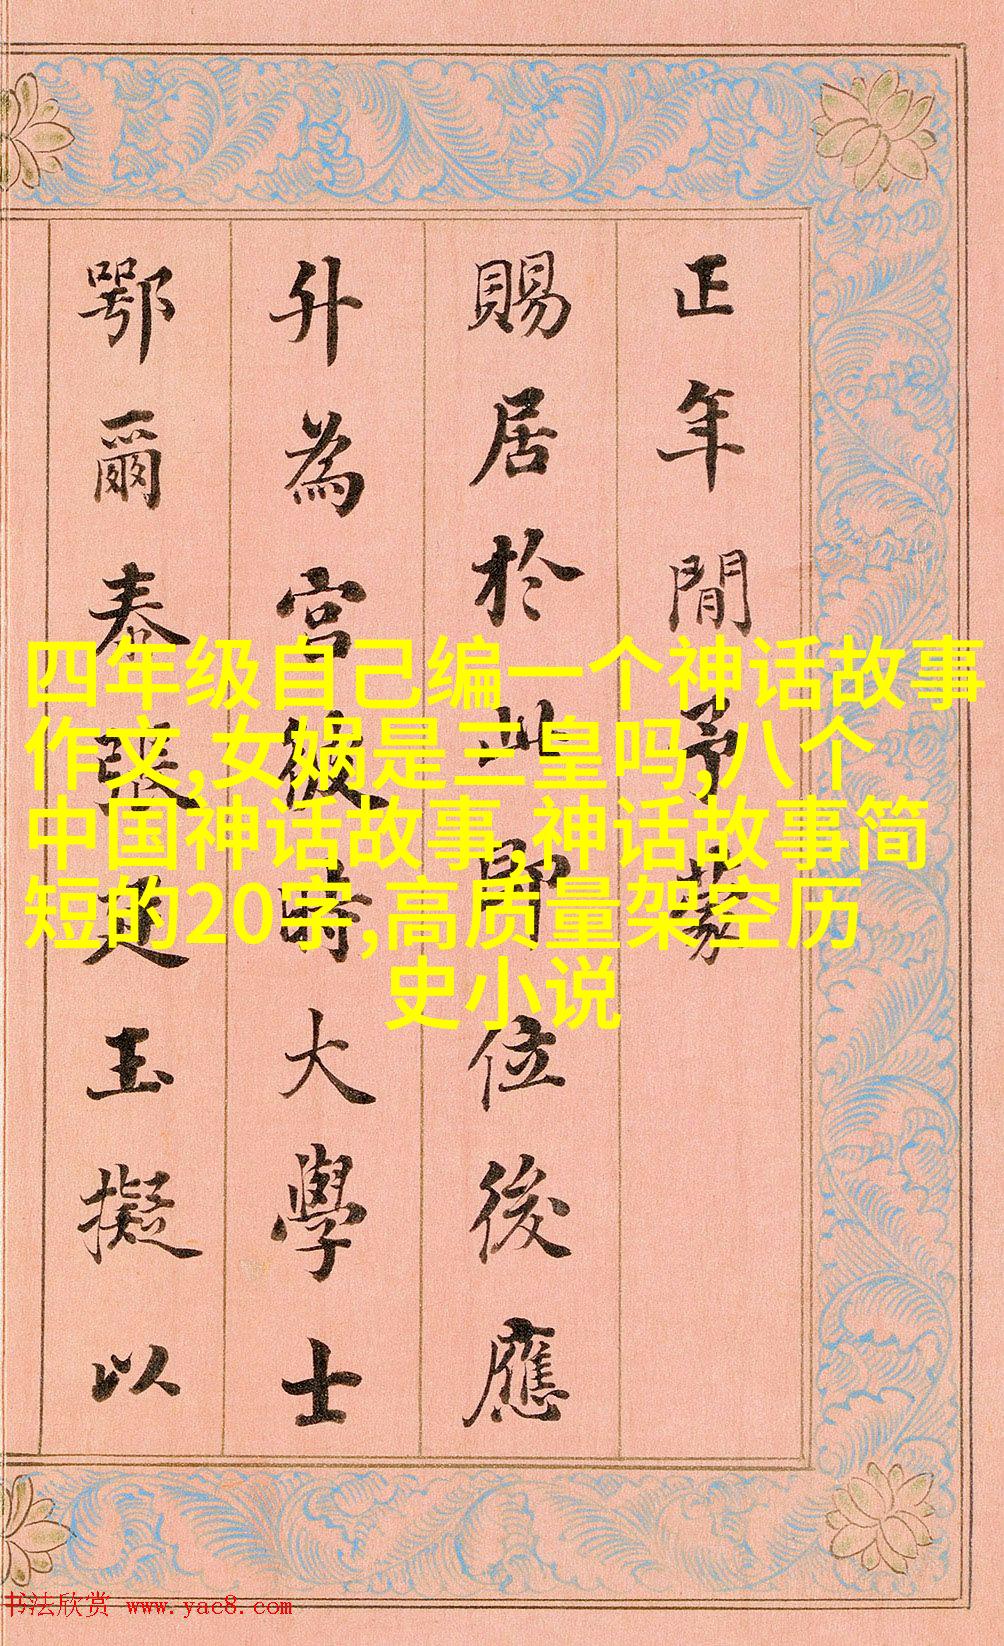 正年間予蒙
賜居於此即位後應
升為宮彼時大學士
鄂爾泰張廷玉擬以
四年级自己编一个神话故事
作文,女娲是三皇吗,八个
中国神话故事,神话故事简
短的20字,高质量架空历
史小说
书法欣赏 www.yac8.com